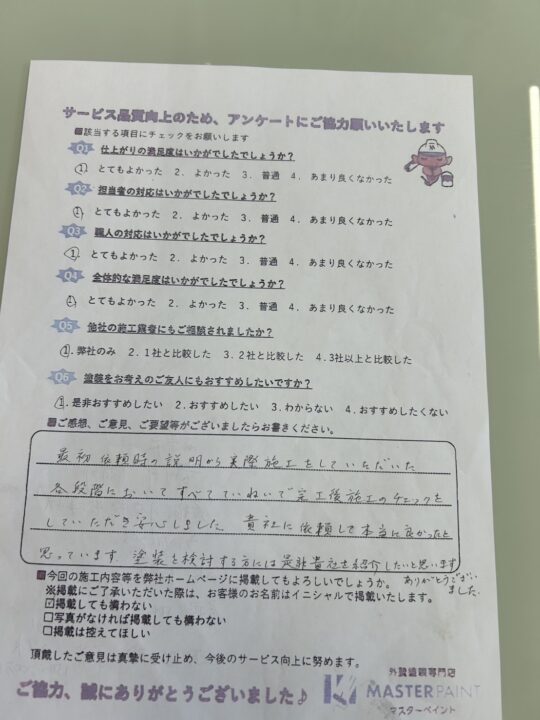 サービス品質向上のため、アンケートにご協力願いいたします
■該当する項目にチェックをお願いします
Q1 仕上がりの満足度はいかがでしたでしょうか?
① とてもよかった 2. よかった 3. 普通 4. あまり良くなかった
Q2 担当者の対応はいかがでしたでしょうか?
① とてもよかった 2. よかった 3. 普通 4. あまり良くなかった
Q3 職人の対応はいかがでしたでしょうか?
① とてもよかった 2. よかった 3. 普通 4. あまり良くなかった
Q4 全体的な満足度はいかがでしたでしょうか?
① とてもよかった 2. よかった 3. 普通 4. あまり良くなかった
Q5 他社の施工業者にもご相談されましたか?
①.弊社のみ 2.1社と比較した 3.2社と比較した 4.3社以上と比較した
Q6 塗装をお考えのご友人にもおすすめしたいですか?
①.是非おすすめしたい 2.おすすめしたい 3.わからない 4.おすすめしたくない
■ご感想、ご意見、ご要望等がございましたらお書きください。
最初依頼時の説明から実際施工をしていただいた
各段階においてすべてていねいで完工後施工のチェックを
していただき安心しました 貴社に依頼して本当に良かったと
思っています 塗装を検討する方には是非貴社を紹介したいと思います
ありがとうござい
ました
■今回の施工内容等を弊社ホームページに掲載してもよろしいでしょうか。
※掲載にご了承いただいた際は、お客様のお名前はイニシャルで掲載いたします。
☑掲載しても構わない
□写真がなければ掲載しても構わない
□掲載は控えてほしい
頂戴したご意見は真摯に受け止め、今後のサービス向上に努めます。
ご協力、誠にありがとうございました♪
外装塗装専門店
MASTERPAINT
マスターペイント